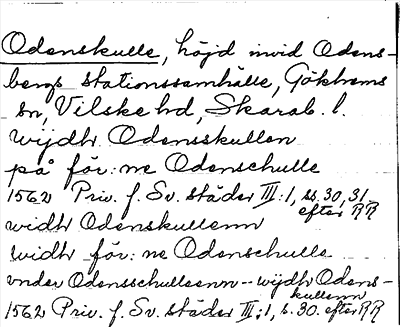 Odenskulle, höjd invid Odens-
bergs stationssamhälle, Gökhems
sn, Vilske hd, Skarab. l.
wijdh Odensskullen
på för:ne Odenschulle
1562 Priv. f. Sv. städer III:1, ss. 30, 31
efter RR
widh Odenskullenn
widh för:ne Odenschulle
vnder Odensschulleenn - wijdh Odens-
kullenn
1562 Priv. f. Sv. städer III:1, s. 30. efter RR